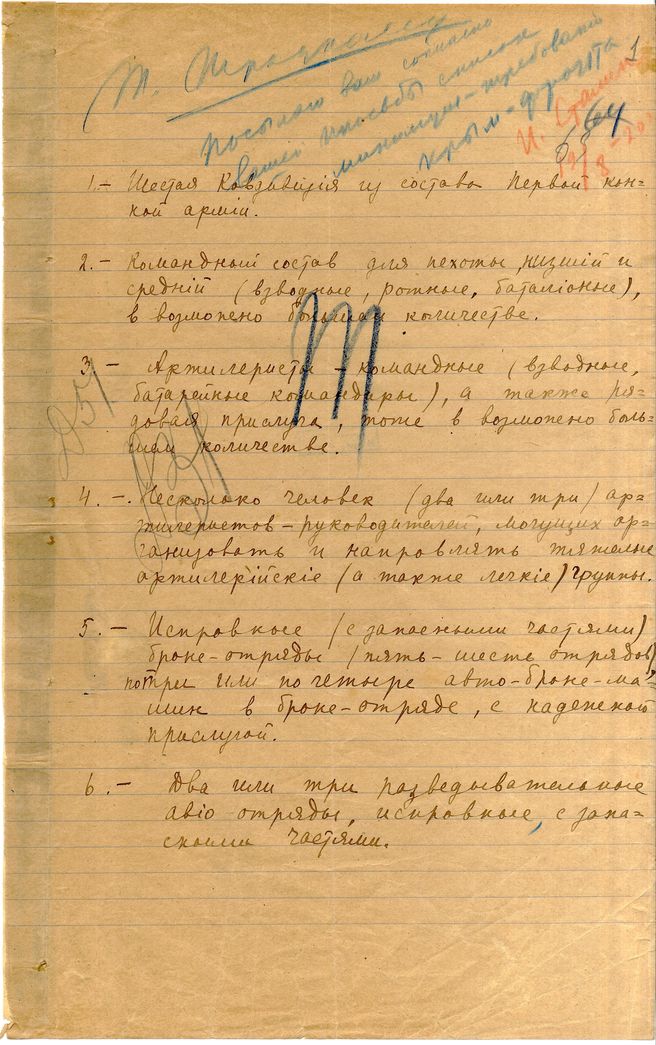 1
Посылаю Вам согласно
Вашей просьбы список
минимум-требований
Крым-фронта
64
И. Сталин
19/8-20
1.- Шестая Кавдивизія из состава Первой кон-
ной арміи.
2.- Командный состав для пехоты, низшій и
средній (взводные, ротные, баталіоные),
в возможно большом количестве.
3 - Артилеристы - командные (взводные,
батарейные командиры), а также ря-
довая прислуга, тоже в возможено боль-
шом количестве.
4.-. Несколько человек (два или три) ар-
тилеристов-руководителей, могущих ор-
ганизовать и направлять тяжелые
артилерійскіе (а также легкіе) группы.
5.- Исправные (с запасными частями)
броне-отряды (пять-шесть отрядов)
по три или по четыре авто-броне-ма-
шин в броне-отряде, с надежной
прислугой.
6.- Два или три разведывательные
авіо отряды, исправные, с запа-
сными частями.